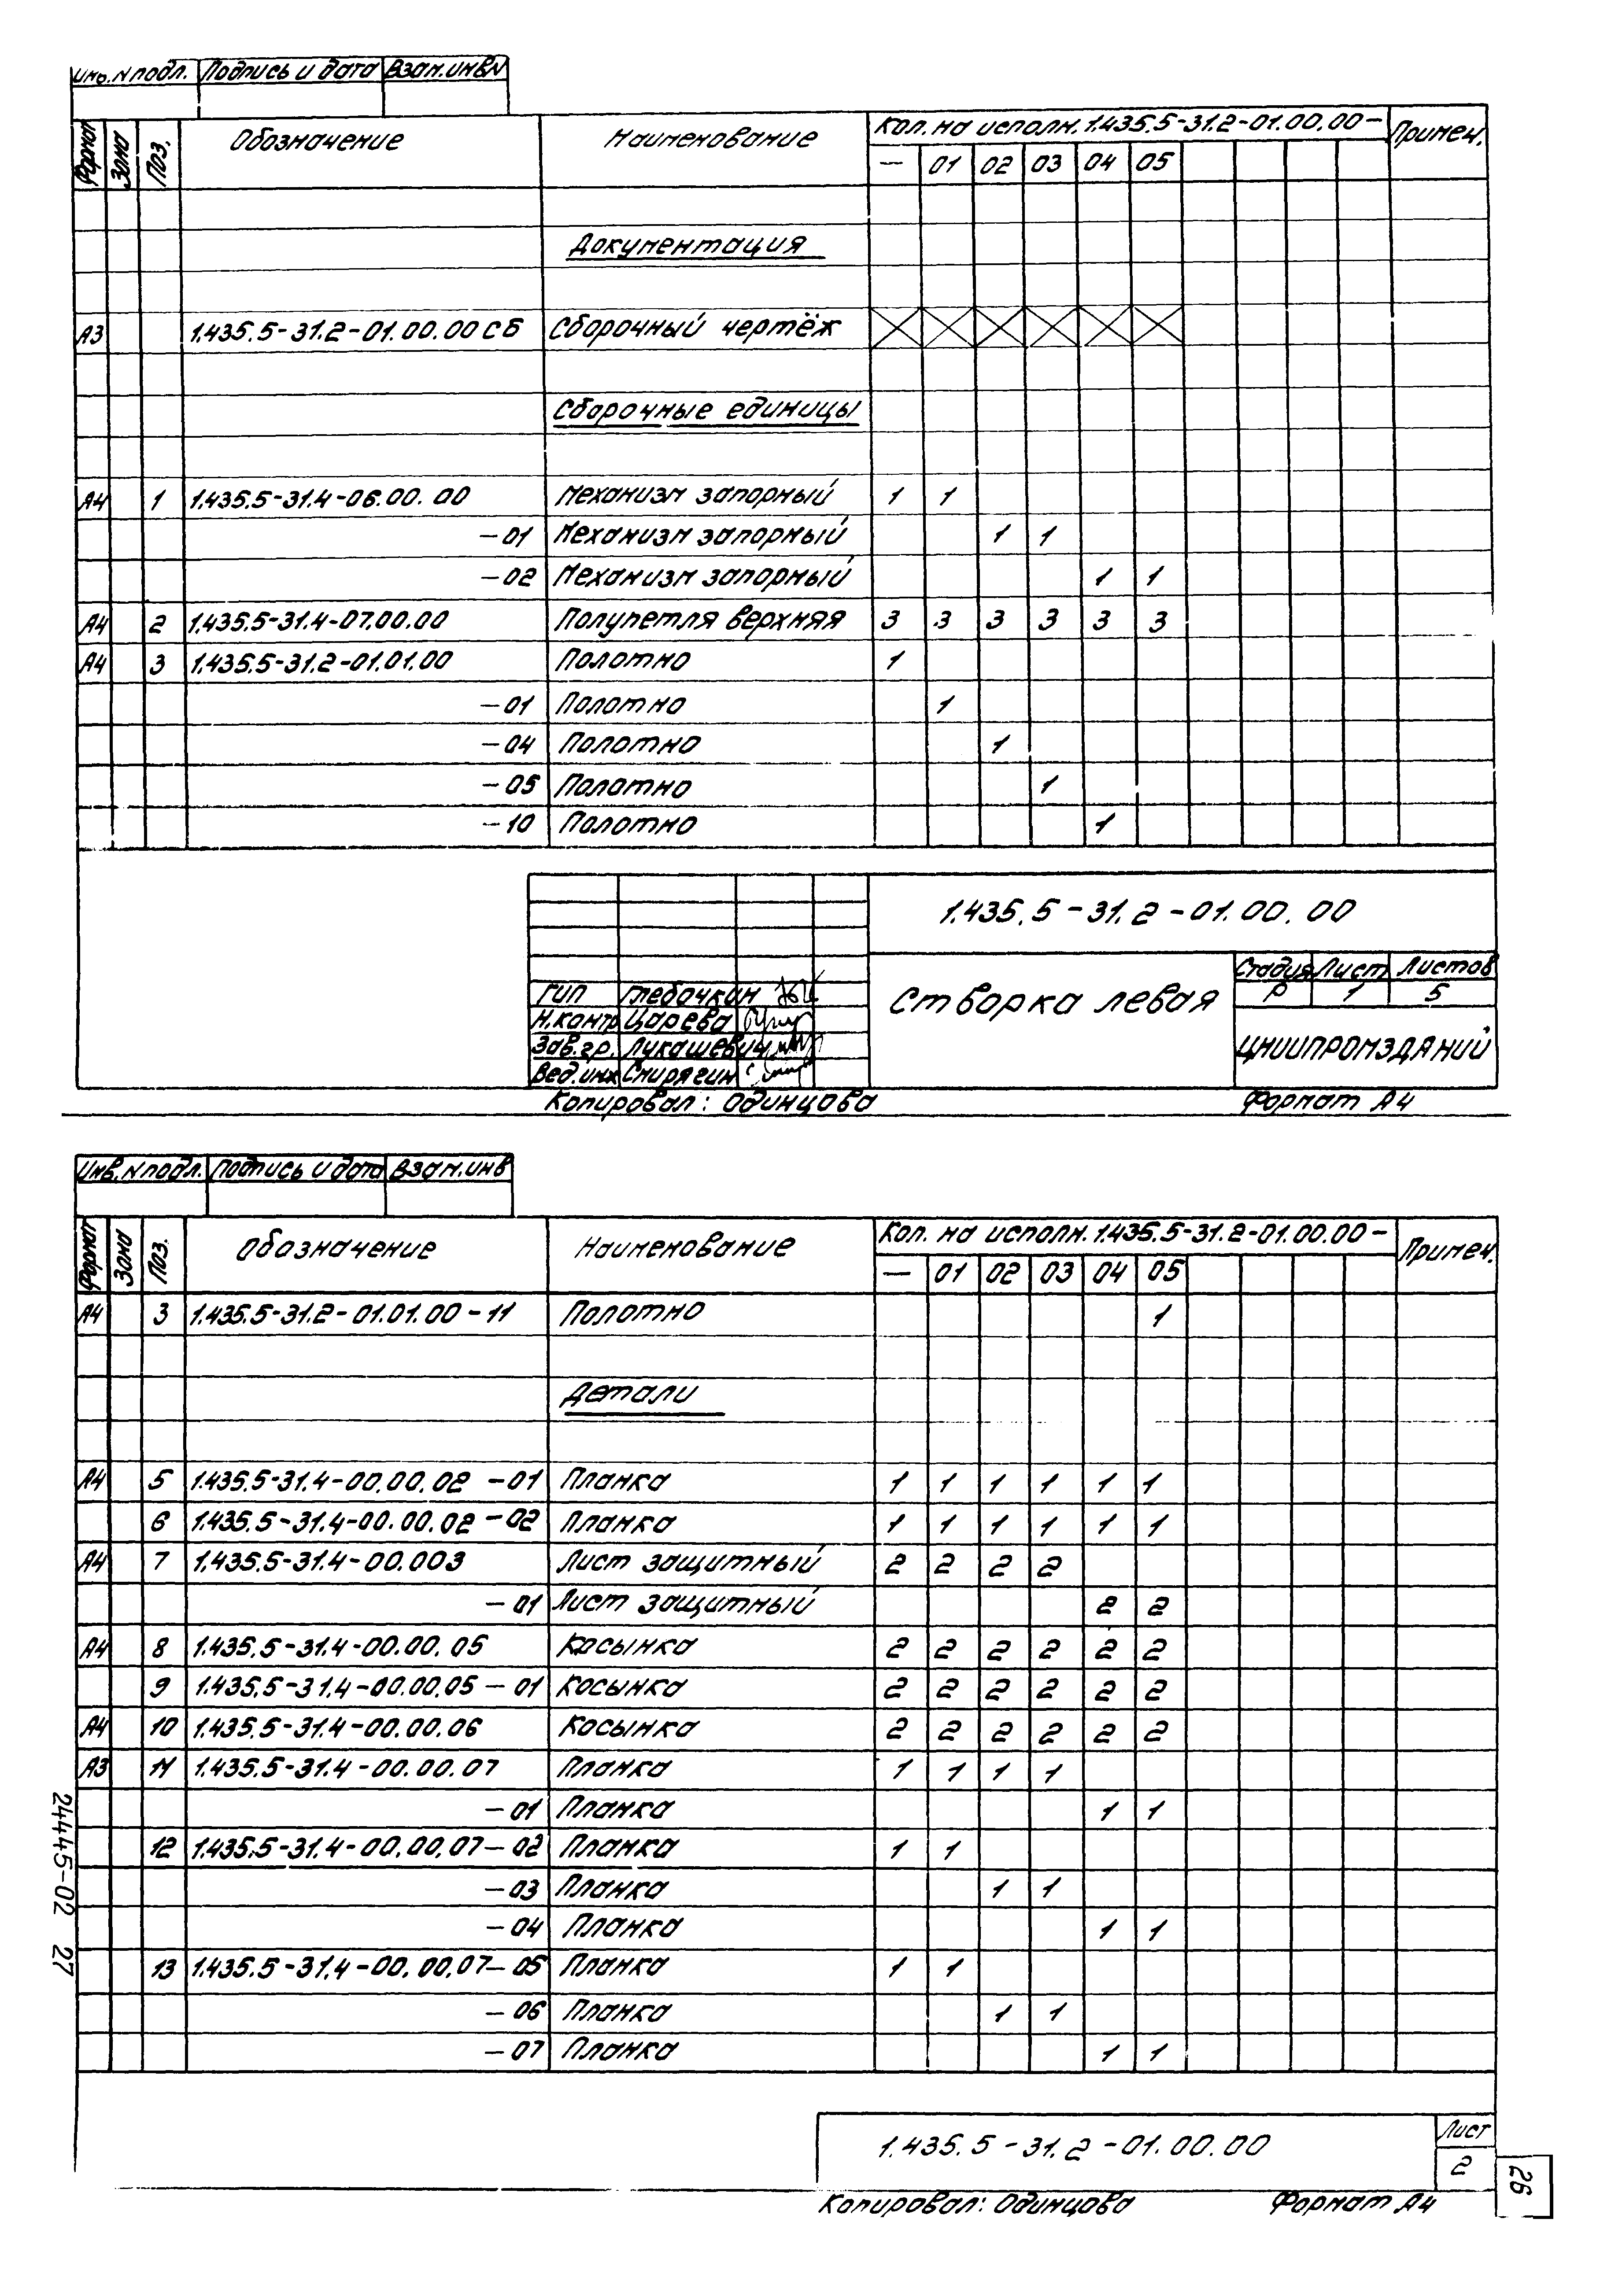 Инв.N подл. Подпись и дата Взам.инвN
Формат Зона Поз. Обозначение Наименование Кол. на исполн. 1.435.5-31.2-01.00.00- Примеч.
— 01 02 03 04 05
Документация
А3 1.435.5-31.2-01.00.00 СБ Сборочный чертёж
Сборочные единицы
А4 1 1.435.5-31.4-06.00.00 Механизм запорный 1 1
-01 Механизм запорный 1 1
-02 Механизм запорный 1 1
А4 2 1.435.5-31.4-07.00.00 Полупетля верхняя 3 3 3 3 3 3
А4 3 1.435.5-31.2-01.01.00 Полотно 1
-01 Полотно 1
-04 Полотно 1
-05 Полотно 1
-10 Полотно 1
1.435.5-31.2-01.00.00
Створка левая
Стадия Лист Листов
Р 1 5
ЦНИИПРОМЗДАНИЙ
ГИП Глебочкин
Н.контр Царева
Зав.гр. Лукашевич
Вед.инж Спирягин
Копировал: Одинцова Формат А4
Инв.N подл. Подпись и дата Взам.инв
Формат Зона Поз. Обозначение Наименование Кол. на исполн. 1.435.5-31.2-01.00.00- Примеч.
— 01 02 03 04 05
А4 3 1.435.5-31.2-01.01.00-11 Полотно 1
Детали
А4 5 1.435.5-31.4-00.00.02 -01 Планка 1 1 1 1 1 1
6 1.435.5-31.4-00.00.02 -02 Планка 1 1 1 1 1 1
А4 7 1.435.5-31.4-00.003 Лист защитный 2 2 2 2
-01 Лист защитный 2 2
А4 8 1.435.5-31.4-00.00.05 Косынка 2 2 2 2 2 2
9 1.435.5-31.4-00.00.05-01 Косынка 2 2 2 2 2 2
А4 10 1.435.5-31.4-00.00.06 Косынка 2 2 2 2 2 2
А3 11 1.435.5-31.4-00.00.07 Планка 1 1 1 1
-01 Планка 1 1
12 1.435.5-31.4-00.00.07-02 Планка 1 1
-03 Планка 1 1
-04 Планка 1 1
13 1.435.5-31.4-00.00.07-05 Планка 1 1
-06 Планка 1 1
-07 Планка 1 1
24445-02 27
1.435.5-31.2-01.00.00 Лист
2
26
Копировал: Одинцова Формат А4